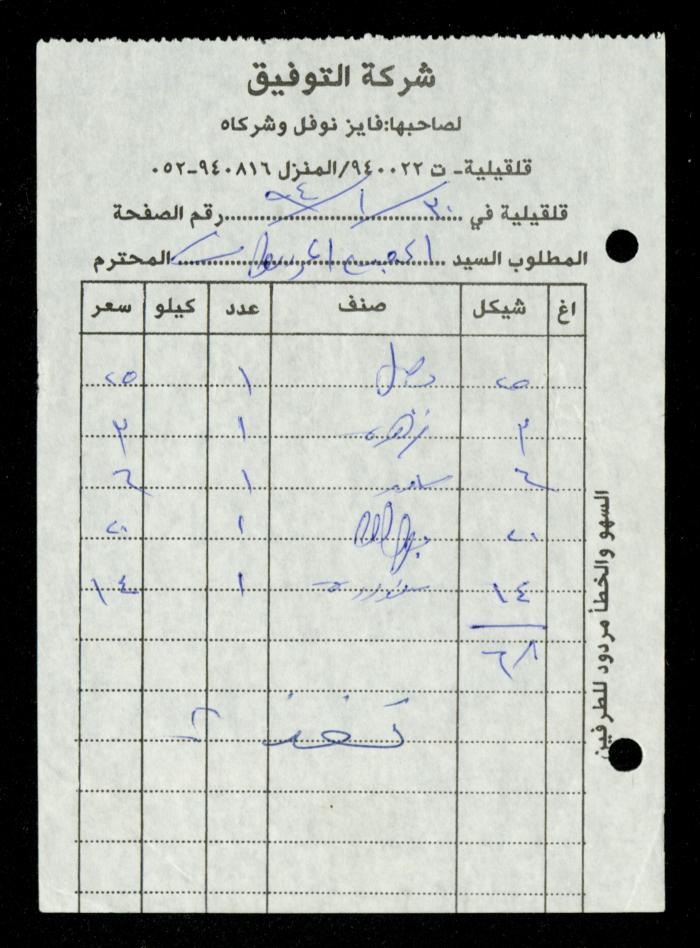 شركة التوفيق
لصاحبها:فايز نوفل وشركاه
قلقيلية- ت ٩٤٠٠٢٢/المنزل ٩٤٠٨١٦-٠٥٢
قلقيلية في ٣٠/١/٩٤ رقم الصفحة
المطلوب السيد المحترم
اغ شيكل صنف عدد كيلو سعر
٢٥ بصل ١ ٢٥
٣ زهرة ١ ٣
٦ ١ ٦
٢٠ ١ ٢٠
١٤ ١ ١٤
٦٨
السهو والخطأ مردود للطرفين